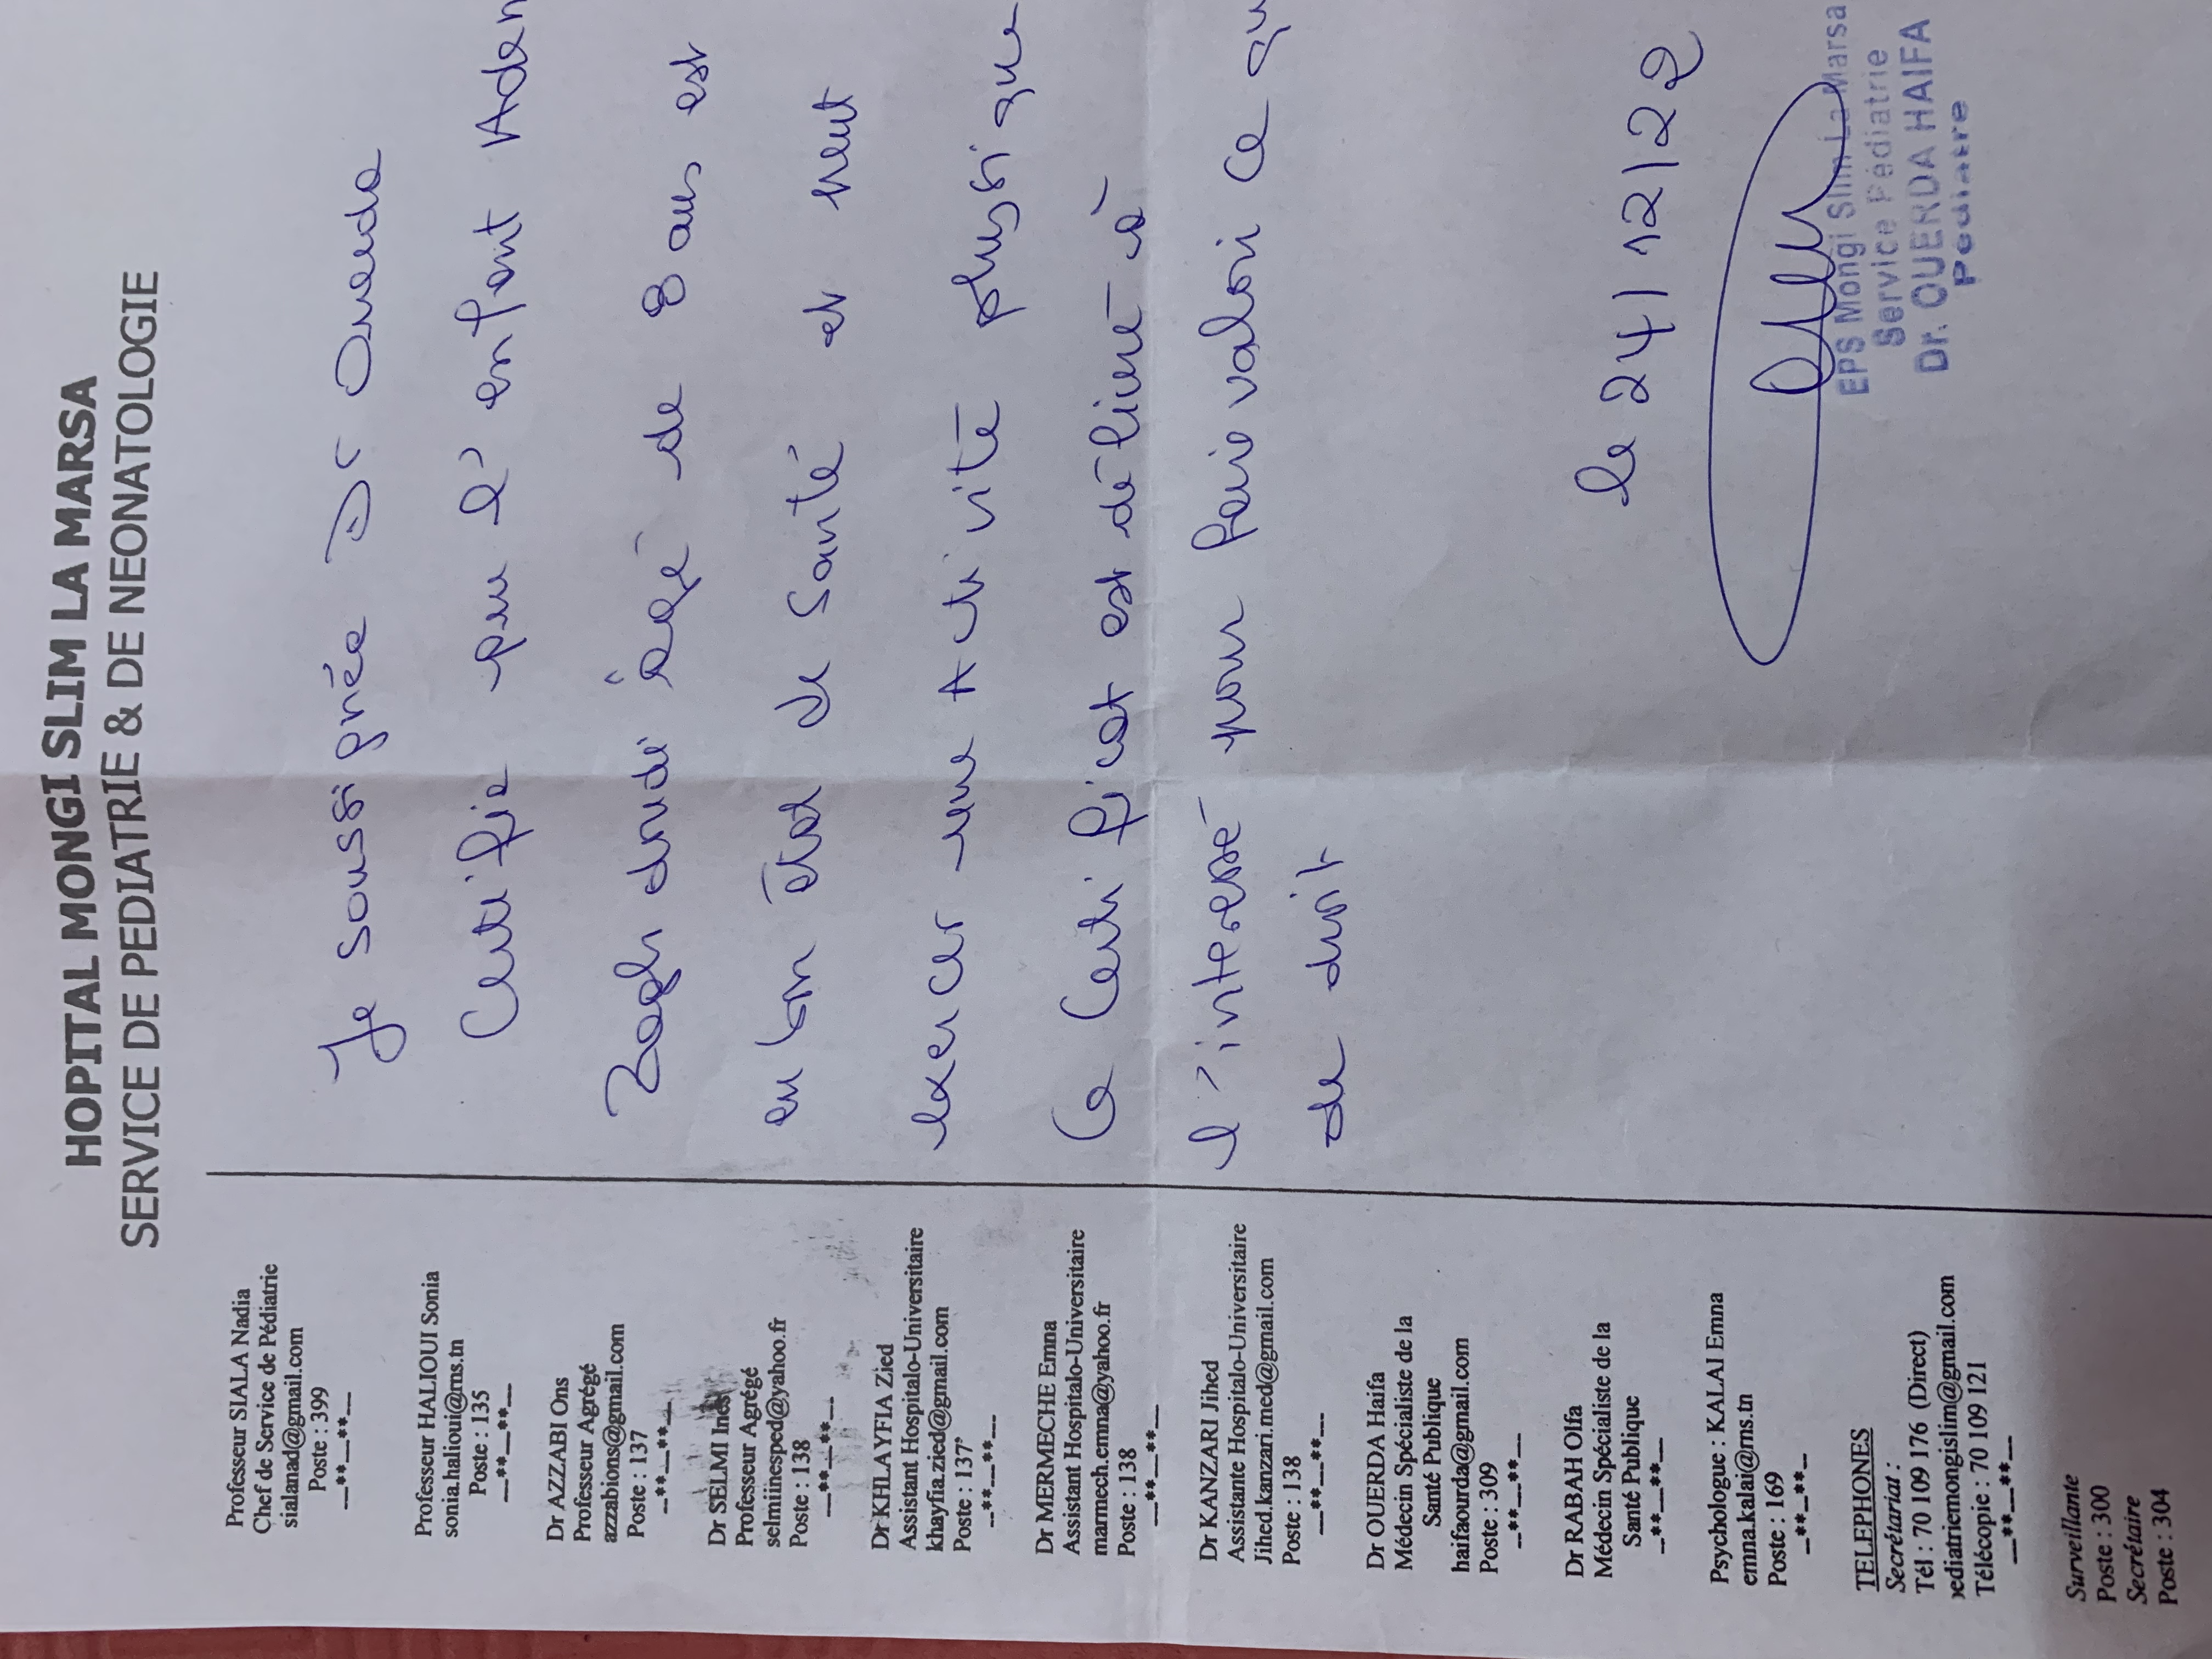 HOPITAL MONGI SLIM LA MARSA
SERVICE DE PEDIATRIE & DE NEONATOLOGIE
Professeur SIALA Nadia
Chef de Service de Pédiatrie
sialanad@gmail.com
Poste : 399
__**__**__
Professeur HALIOUI Sonia
sonia.halioui@rns.tn
Poste : 135
__**__**__
Dr AZZABI Ons
Professeur Agrégé
azzabions@gmail.com
Poste : 137
__**__**__
Dr SELMI Ines
Professeur Agrégé
selmiinesped@yahoo.fr
Poste : 138
__**__**__
Dr KHLAYFIA Zied
Assistant Hospitalo-Universitaire
khayfia.zied@gmail.com
Poste : 137
__**__**__
Dr MERMECHE Emna
Assistant Hospitalo-Universitaire
marmech.emna@yahoo.fr
Poste : 138
__**__**__
Dr KANZARI Jihed
Assistante Hospitalo-Universitaire
Jihed.kanzari.med@gmail.com
Poste : 138
__**__**__
Dr OUERDA Haifa
Médecin Spécialiste de la
Santé Publique
haifaourda@gmail.com
Poste : 309
__**__**__
Dr RABAH Olfa
Médecin Spécialiste de la
Santé Publique
__**__**__
Psychologue : KALAI Emna
emna.kalai@rns.tn
Poste : 169
__**__**__
TELEPHONES
Secrétariat :
Tél : 70 109 176 (Direct)
pediatriemongislim@gmail.com
Télécopie : 70 109 121
__**__**__
Surveillante
Poste : 300
Secrétaire
Poste : 304
Je soussignée Dr Ouerda
Certifie que l'enfant Adam
âgé de 8 ans est
en bon état de santé et peut
exercer une activité physique
Ce certificat est délivré à
l'interessé pour faire valoir ce que
de droit
le 24/12/22
EPS Mongi Slim La Marsa
Service Pédiatrie
Dr. OUERDA HAIFA
Pédiatre